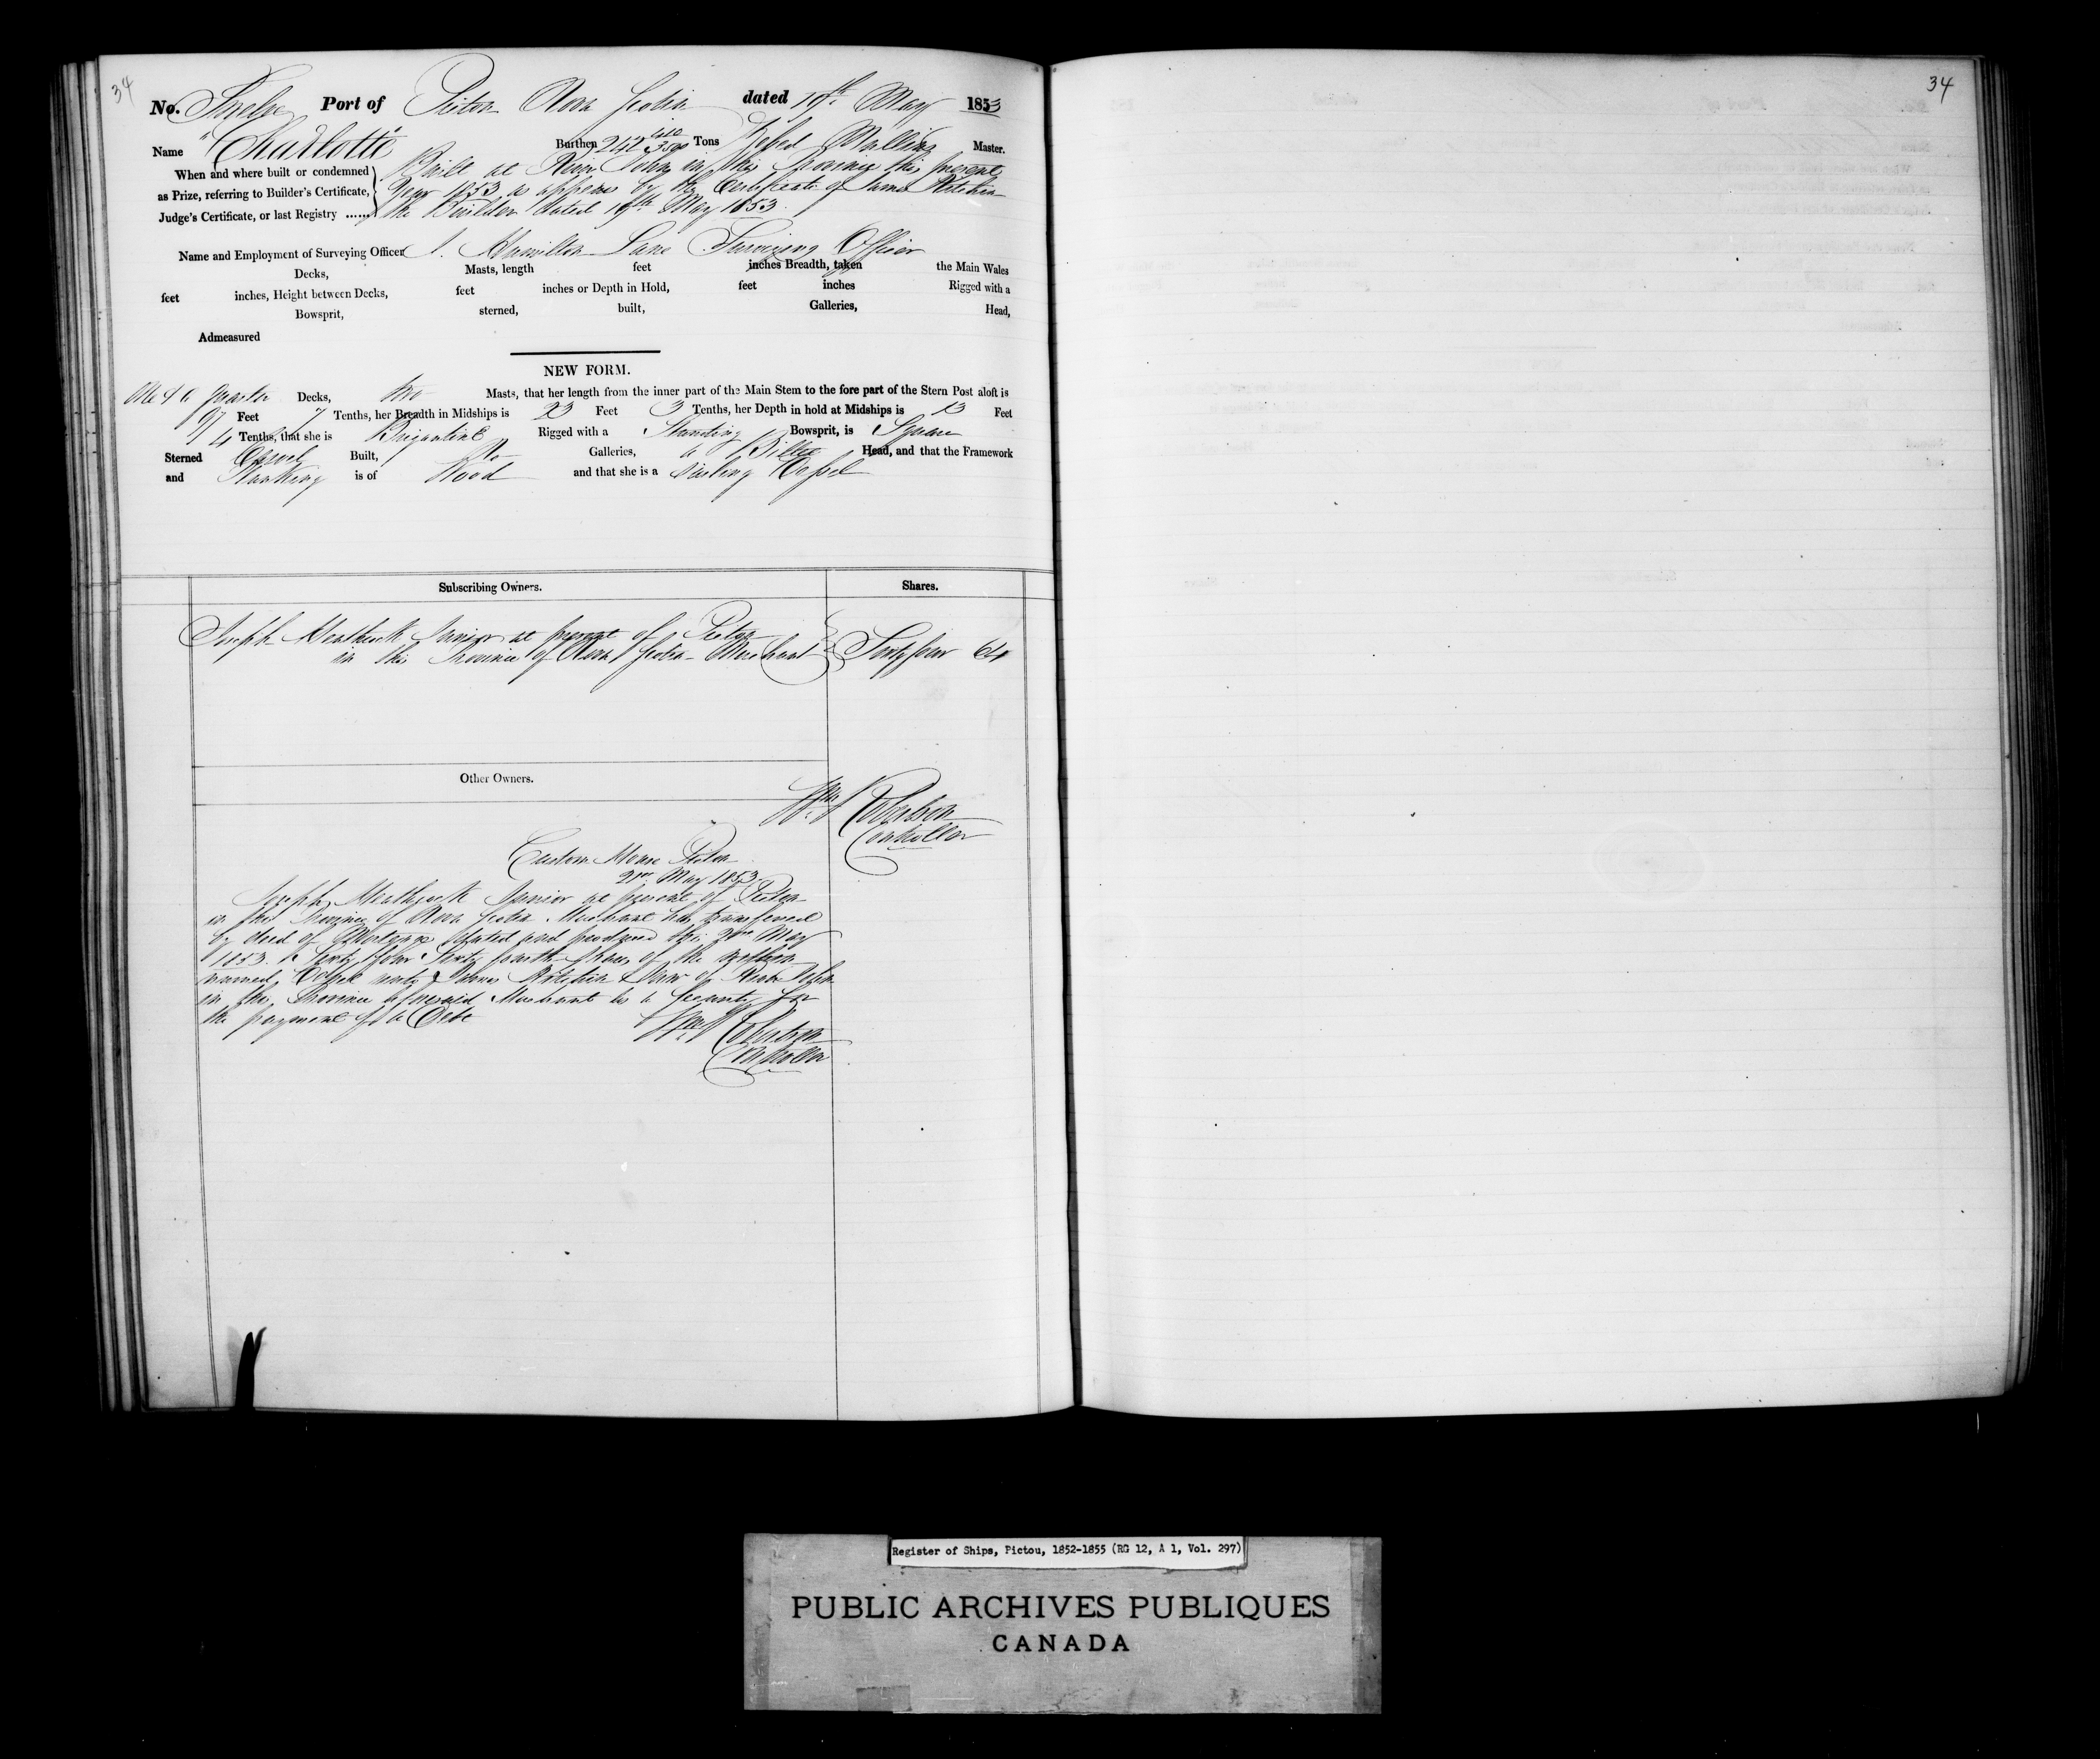 34
34
No. Twelve Port of Pictou Nova Scotia dated 19th May 1853
Name "Charlotte" Burthen 242 Tons Master.
When and where built or condemned
as Prize, referring to Builder's Certificate,
Judge's Certificate, or last Registry ......
Built at River John in this Province this present
Year 1853 as appears by the Certificate of James Kitchin
the Builder dated 19th May 1853.
Name and Employment of Surveying Officer Hamilton Lane Surveying Officer
Decks, Masts, length feet inches Breadth, taken the Main Wales
feet inches, Height between Decks, feet inches or Depth in Hold, feet inches Rigged with a
Bowsprit, sterned, built, Galleries, Head,
Admeasured
NEW FORM.
One & a quarter Decks, two Masts, that her length from the inner part of the Main Stem to the fore part of the Stern Post aloft is
97 Feet 7 Tenths, her Breadth in Midships is 23 Feet 3 Tenths, her Depth in hold at Midships is 13 Feet
4 Tenths, that she is Brigantine Rigged with a Standing Bowsprit, is Square
Sterned Carvel Built, No Galleries, a Billet Head, and that the Framework
and Planking is of Wood and that she is a Sailing Vessel
Subscribing Owners. Shares.
Joseph Junior at present of Pictou
in the Province of Nova Scotia Merchant Sixty four 64
Other Owners.
Wm Robertson
Controller
Custom House Pictou
21st May 1853.
Joseph Junior at present of Pictou
in the Province of Nova Scotia Merchant has transferred
by deed of Mortgage dated and produced this May
1853. Sixty four Sixty fourth shares of the within
named Vessel unto James Kitchin of River John
in the Province aforesaid Merchant as a Security for
the payment of a Debt
Wm Robertson
Controller
Register of Ships, Pictou, 1852-1855 (RG 12, A 1, Vol. 297)
PUBLIC ARCHIVES PUBLIQUES
CANADA